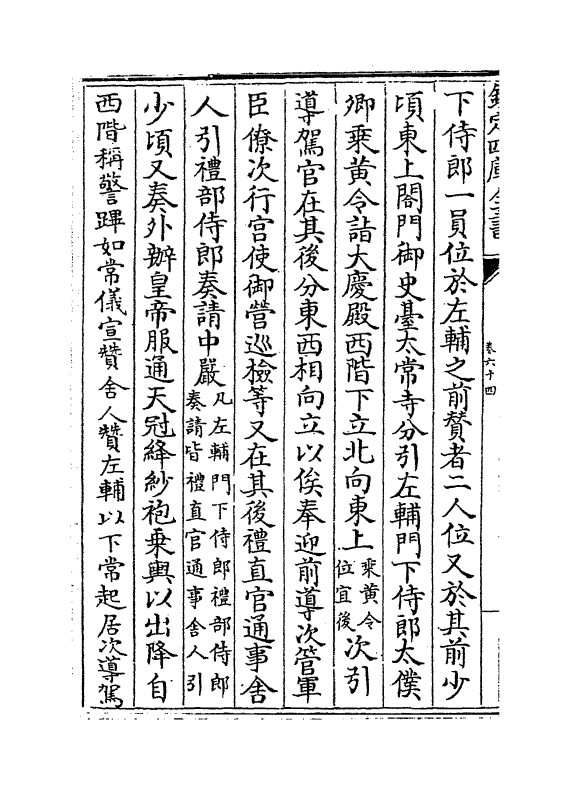 欽定四庫全書
卷六十四
下侍郎一員位於左輔之前賛者二人位又於其前少
頃東上閤門御史臺太常寺分引左輔門下侍郎太僕
卿乗黄令詣大慶殿西階下立北向東上乘黄令位宜後次引
導駕官在其後分東西相向立以俟奉迎前導次管軍
臣僚次行宫使御營巡檢等又在其後禮直官通事舍
人引禮部侍郎奏請中嚴凡左輔門下侍郎禮部侍郎奏請皆禮直官通事舍人引
少頃又奏外辦皇帝服通天冠絳紗袍乗輿以出降自
西階稱警蹕如常儀宣贊舍人贊左輔以下常起居次導駕